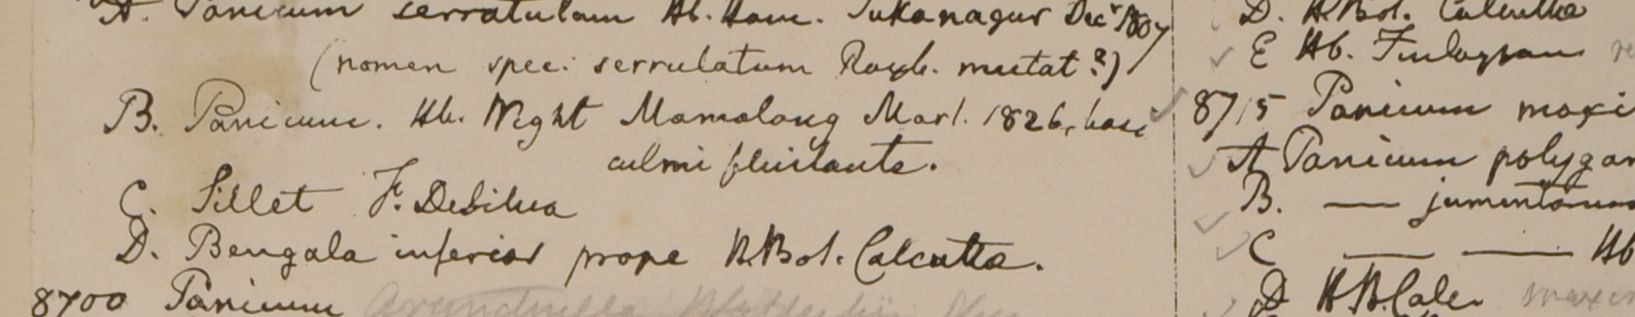 A. Panicum serratulum Hb. Ham. Sukanagur Decr 1807
(nomen spec. serrulatum Roxb. mutat?)
B. Panicum. Hb. Wight Mamalang Mart. 1826, basi
culmi fluitante.
C. Sillet F. DeSilva
D. Bengala inferior prope H. Bot. Calcutta.
8700 Panicum
D. H. Bot. Calcutta
E Hb. Finlayson
8715 Panicum maxi
A Panicum polygam
B. — jumentorum
C — — Hb
D H. B. Calc.